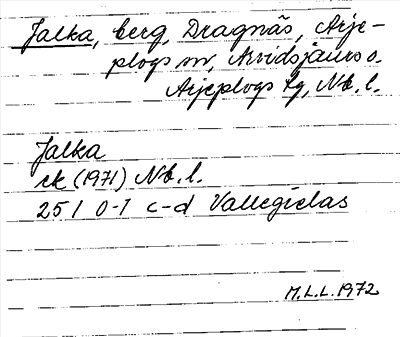 Jalka, berg, Dragnäs, Arje-
plogs sn, Arvidsjaurs o.
Arjeplogs lg, Nb. l.
Jalka
ek (1971) Nb. l.
25 I 0-1 c-d Vallegielas
M.L.L. 1972